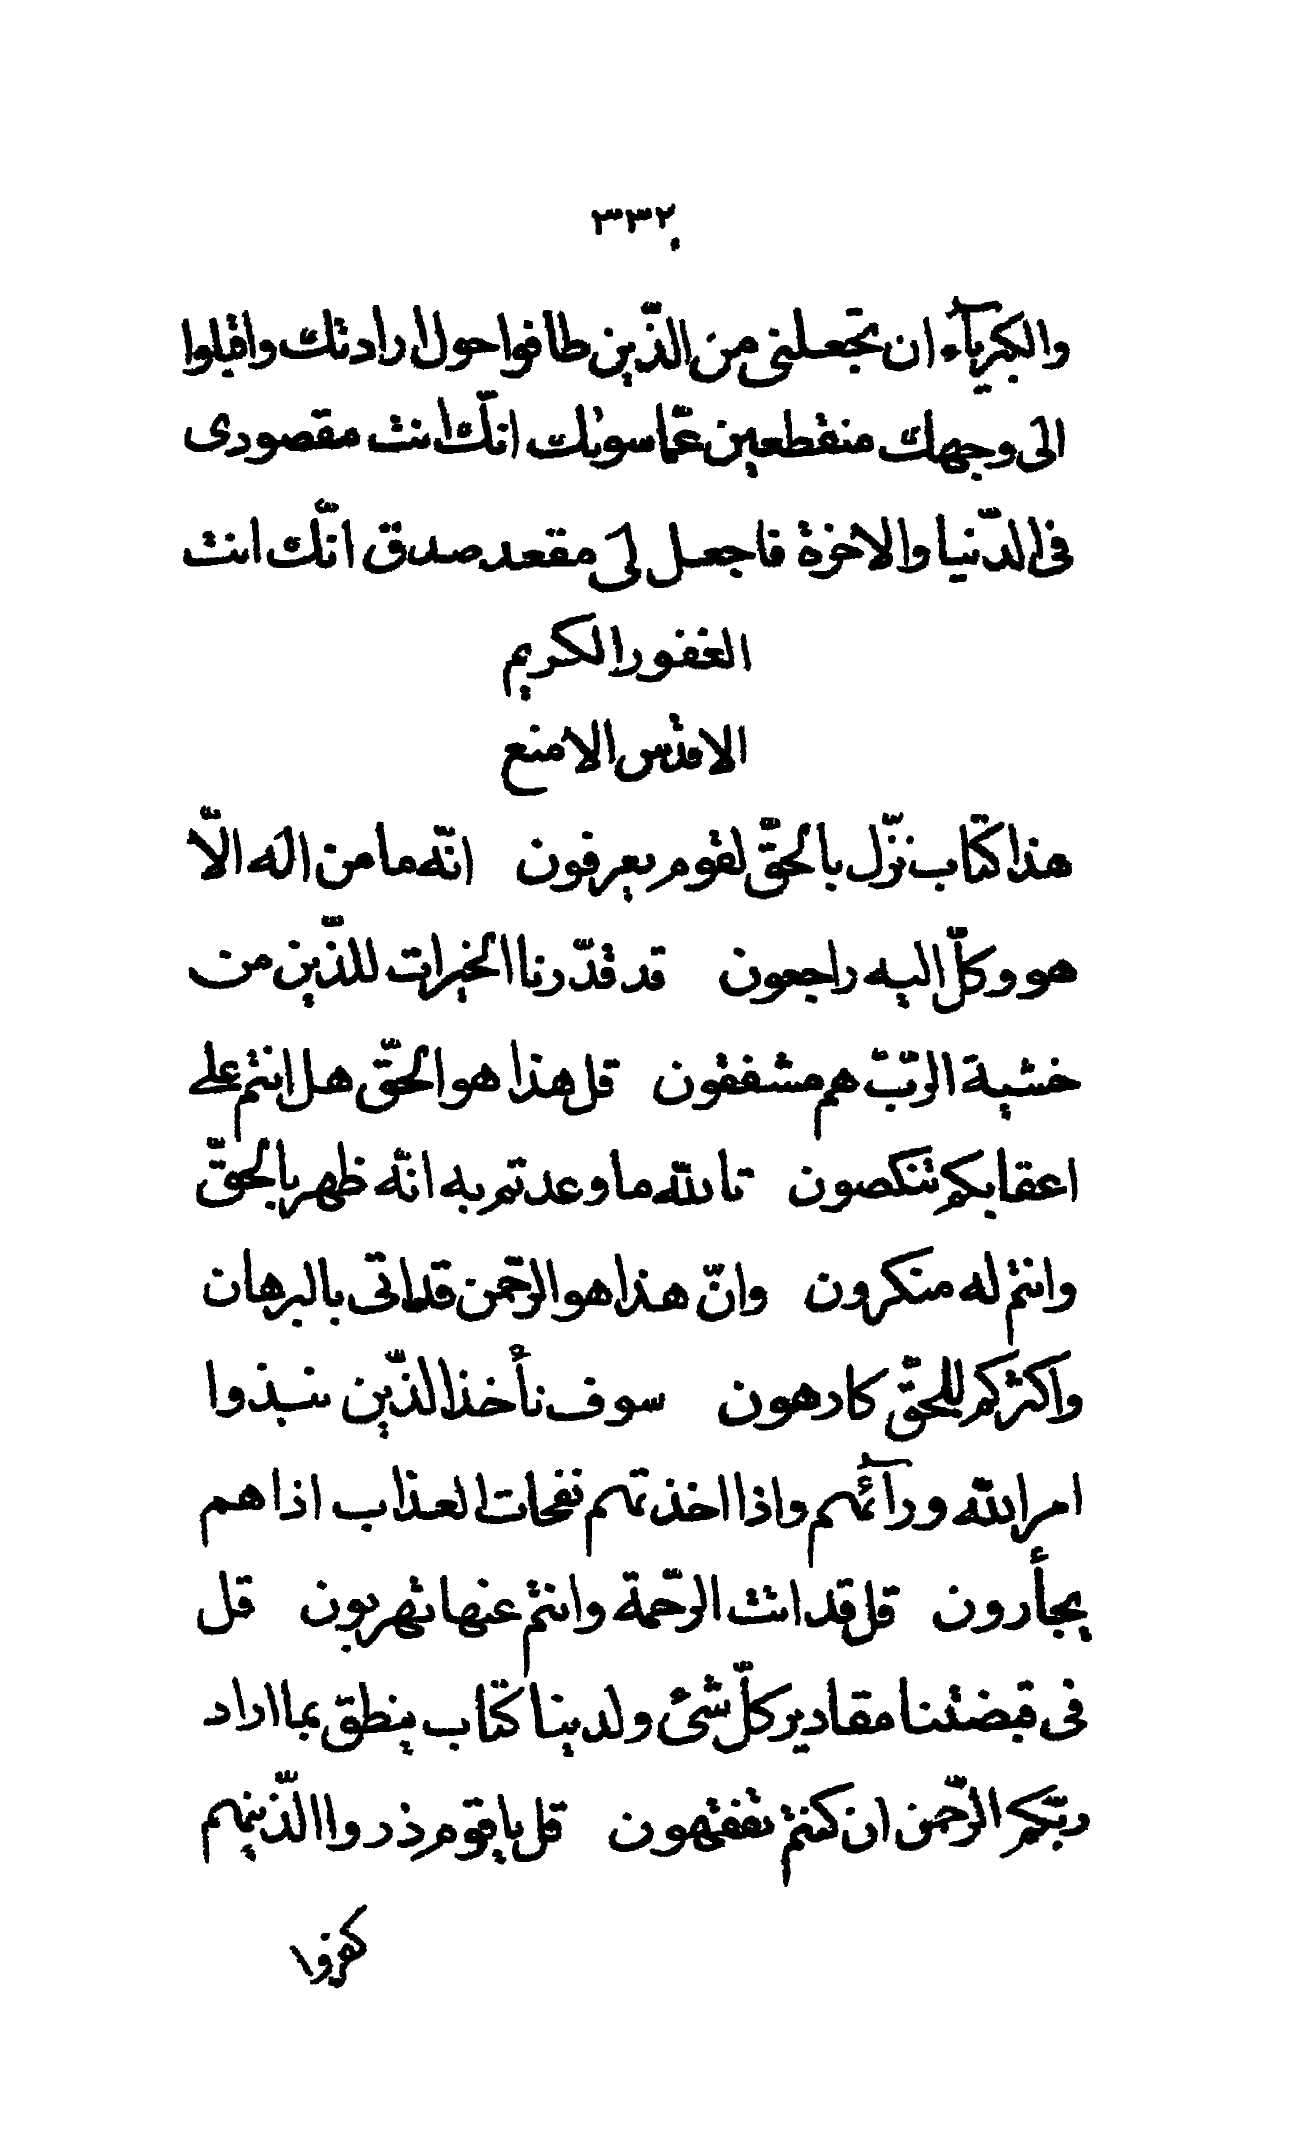 ٢٣٣
والكبريآء ان تجعلنى من الّذين طافوا حول ارادتك واقبلوا
الى وجهك منقطعين عمّا سويك انّك انت مقصودى
فى الدّنيا والاخرة فاجعل لى مقعد صدق انّك انت
الغفور الكريم
الاقدس الامنع
هذا كتاب نزّل بالحقّ لقوم يعرفون انّه ما من اله الّا
هو وكلّ اليه راجعون قد قدّرنا الخيرات للّذين من
خشية الرّبّ هم مشفقون قل هذا هو الحقّ هل انتم على
اعقابكم تنكصون تالله ما وعدتم به انّه ظهر بالحقّ
وانتم له منكرون وانّ هذا هو الرّحمن قد اتى بالبرهان
واكثركم للحقّ كارهون سوف نأخذ الّذين نبذوا
امر الله ورآئهم واذا اخذتهم نفحات العذاب اذا هم
يجأرون قل قد اتت الرّحمة وانتم عنها تهربون قل
فى قبضتنا مقادير كلّ شئ ولدينا كتاب ينطق بما اراد
ربّكم الرّحمن ان كنتم تفقهون قل يا قوم ذروا الّذينهم
كفروا